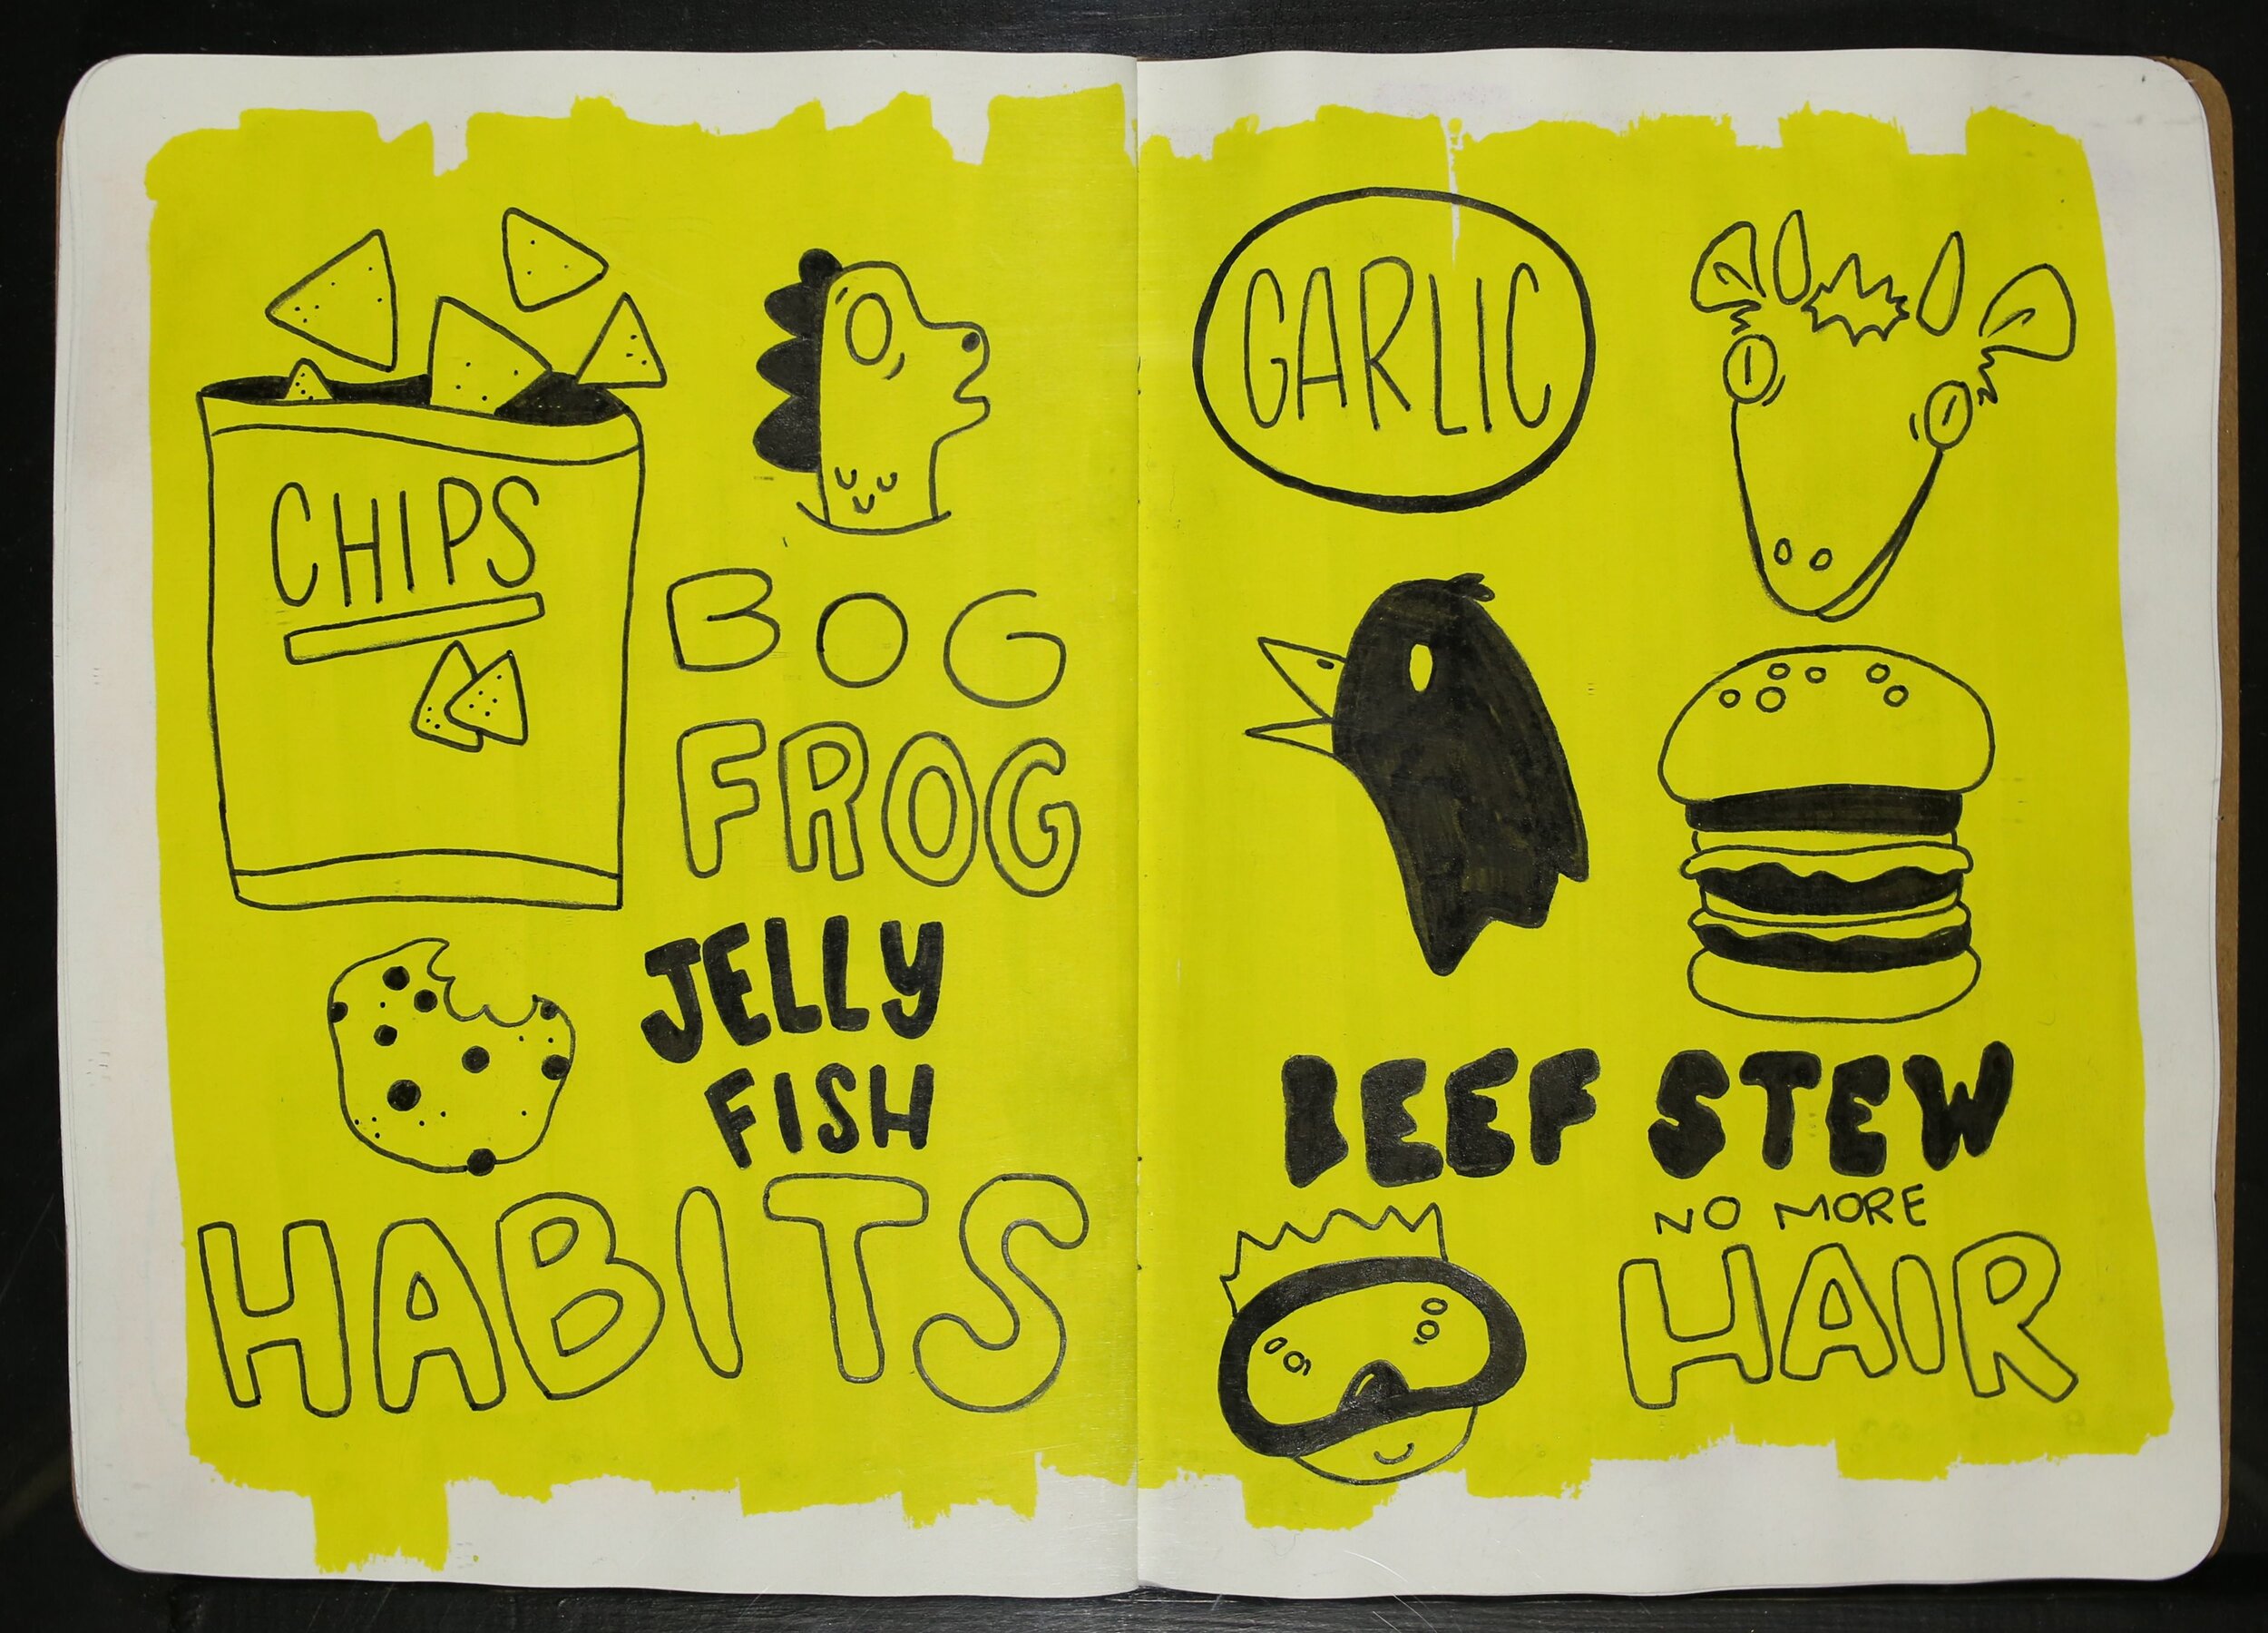 CHIPS
BOG
FROG
JELLY
FISH
HABITS
GARLIC
BEEF STEW
NO MORE
HAIR